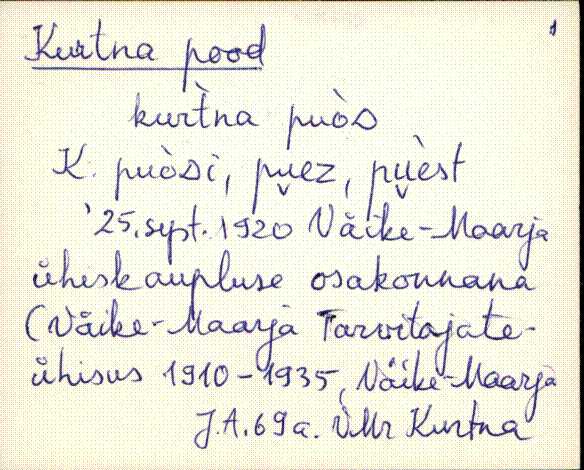 1
Kurtna pood
kurt̀na puòs
K. puòsi, pu̬ez, pu̬èst
'25. sept. 1920 Väike-Maarja
üheskaupluse osakonnana
(Väike-Maarja Tarvitajate-
ühisus 1910-1935, Väike-Maarja
J.A. 69 a. VMr Kurtna